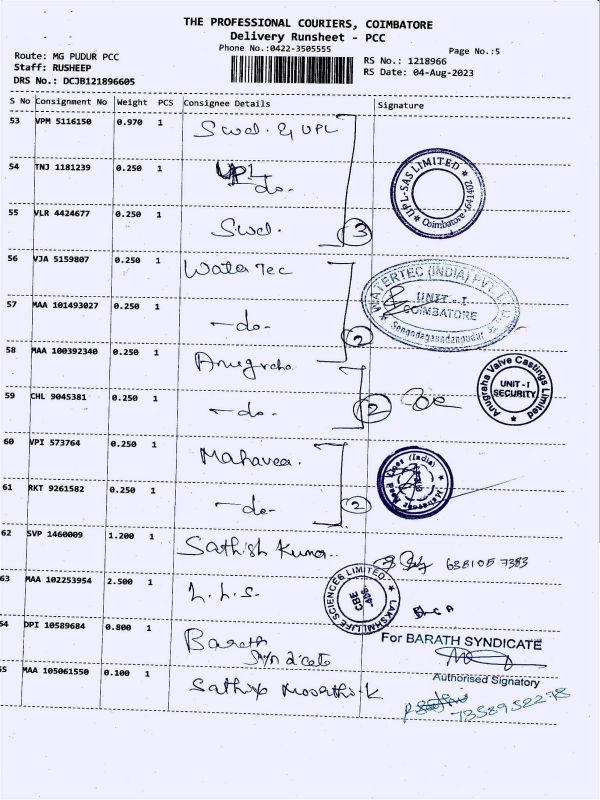 THE PROFESSIONAL COURIERS, COIMBATORE
Delivery Runsheet - PCC
Phone No.:0422-3505555
Page No.:5
Route: MG PUDUR PCC
Staff: RUSHEEP
DRS No.: DCJB121896605
RS No.: 1218966
RS Date: 04-Aug-2023
S No Consignment No Weight PCS Consignee Details Signature
53 VPM 5116150 0.970 1 Swal. & UPL
54 TNJ 1181239 0.250 1 UPL -do-
UPL-SAS LIMITED * Coimbatore-641402 *
55 VLR 4424677 0.250 1 Swal. 3
56 VJA 5159807 0.250 1 Water Tec
WATERTEC (INDIA) PVT. LTD.
UNIT - I
COIMBATORE
57 MAA 101493027 0.250 1 -do- 2
58 MAA 100392340 0.250 1 Anugraha
Anugraha Valve Castings Limited
UNIT - I
SECURITY
59 CHL 9045381 0.250 1 -do- 2
60 VPI 573764 0.250 1
61 RKT 9261582 0.250 1 -do- 2
62 SVP 1460009 1.200 1 Sathish Kumar..
63 MAA 102253954 2.500 1 L. L. S.
LAKSHMI LIFE SCIENCES LIMITED
CBE
54 DPI 10589684 0.800 1 Barath
For BARATH SYNDICATE
Authorised Signatory
55 MAA 105061550 0.100 1
7358952278